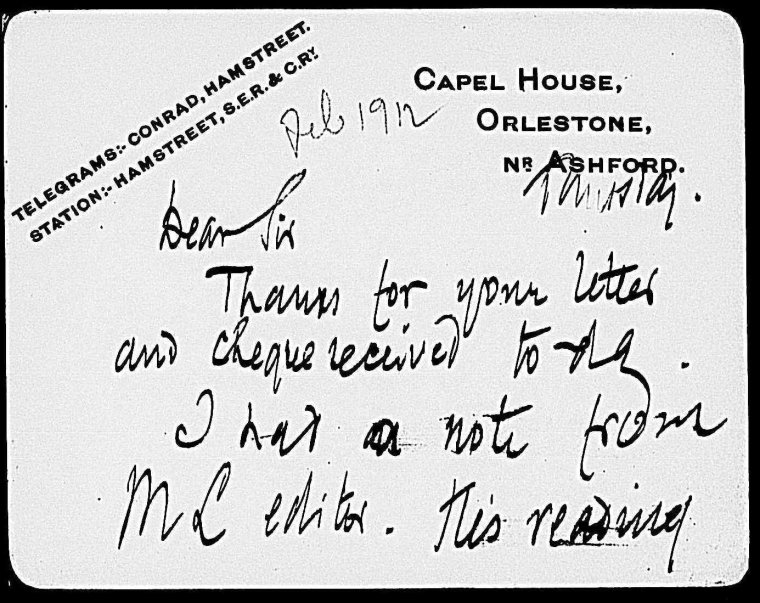 TELEGRAMS:- CONRAD, HAMSTREET.
STATION:- HAMSTREET, S.E.R. & C.RY
CAPEL HOUSE,
ORLESTONE,
NR ASHFORD.
Feb 1912
Dear Sir
Thanks for your letter
and cheque received to-day.
I had a note from
M L editor. His reading